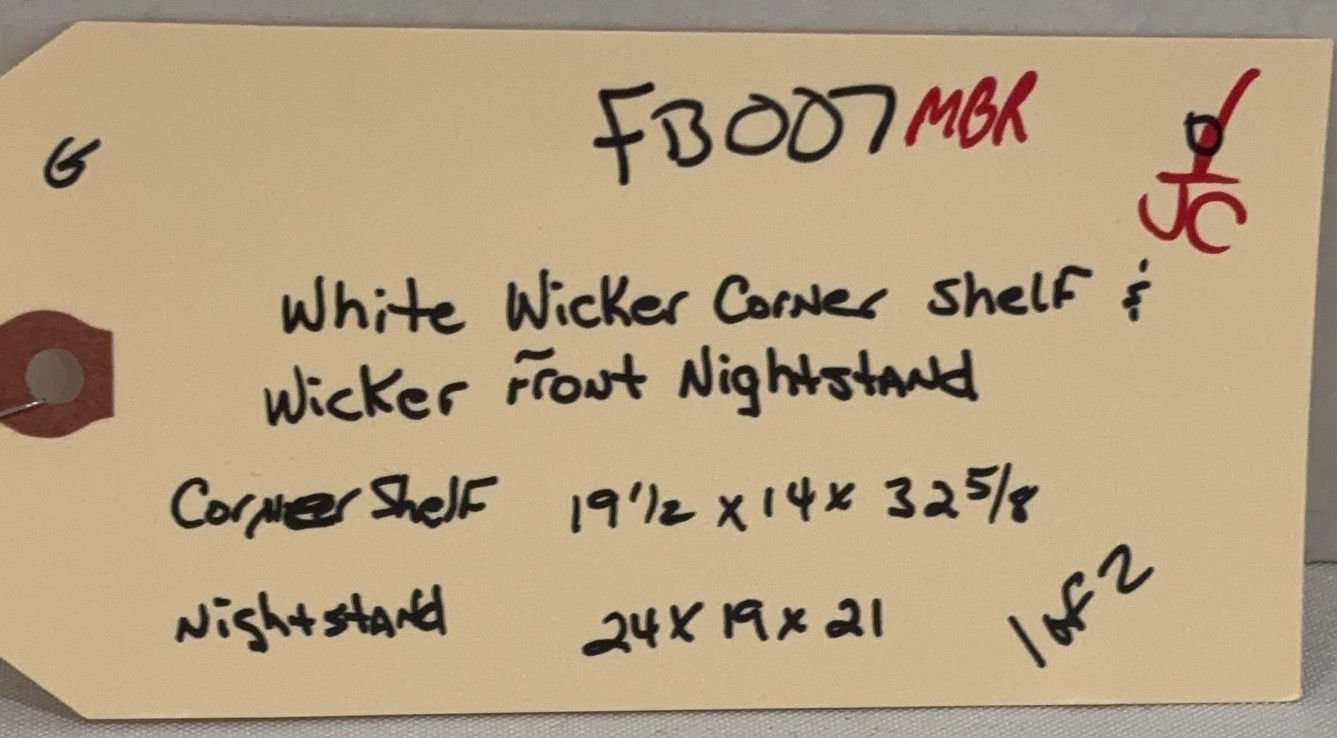 G
FB007 MBR
JC
White Wicker Corner Shelf &
Wicker Front Nightstand
Corner Shelf 19 1/2 x 14 x 32 5/8
Nightstand 24 x 19 x 21
1 of 2